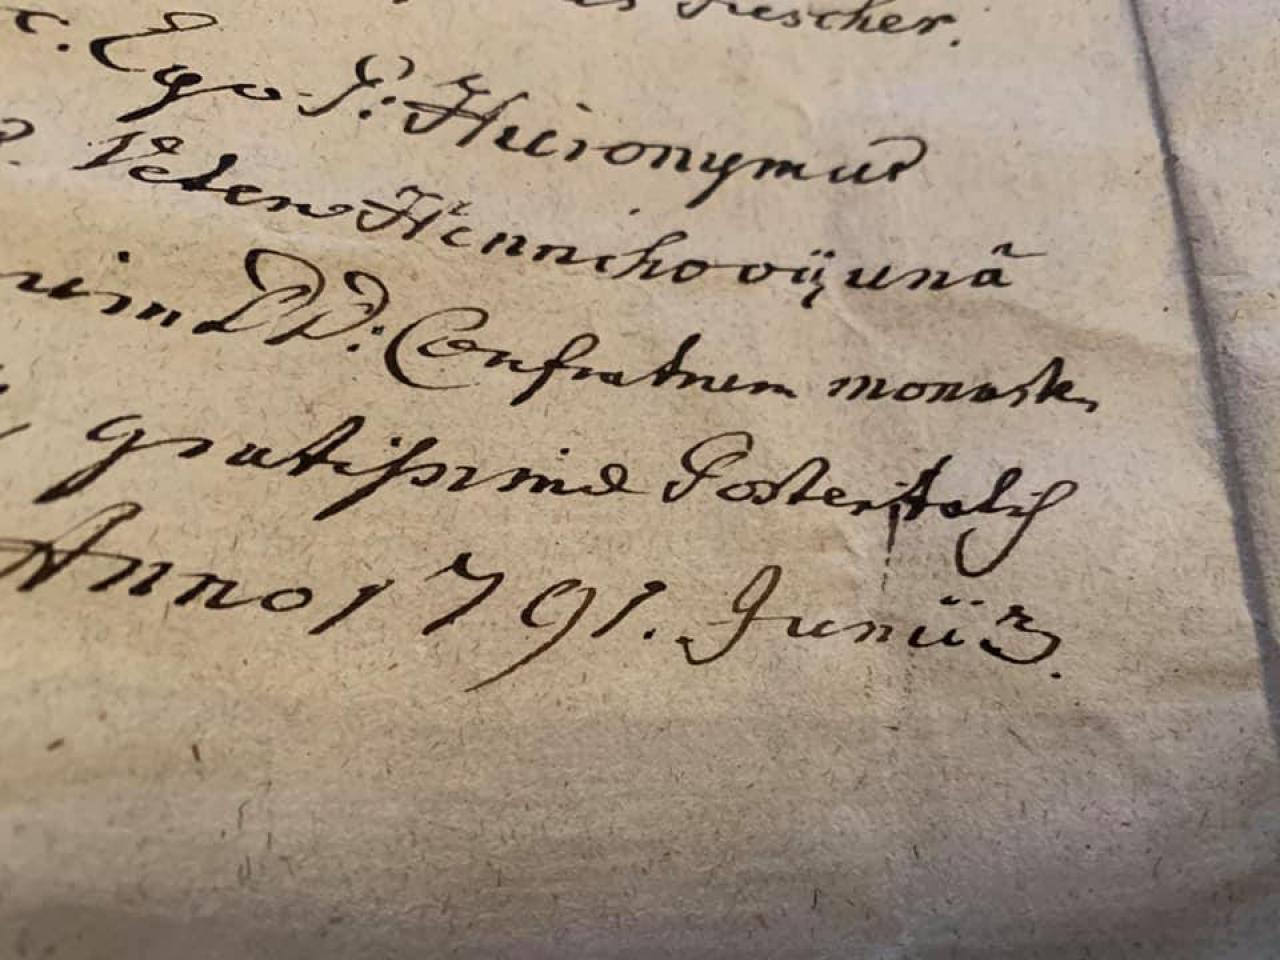 Fiescher.
Ego P: Hieronymus
Veteno Hennrichovÿ unâ
DD: Confratrum monaster
gratissimæ Posteritatis
Anno 1791. Junii 3.